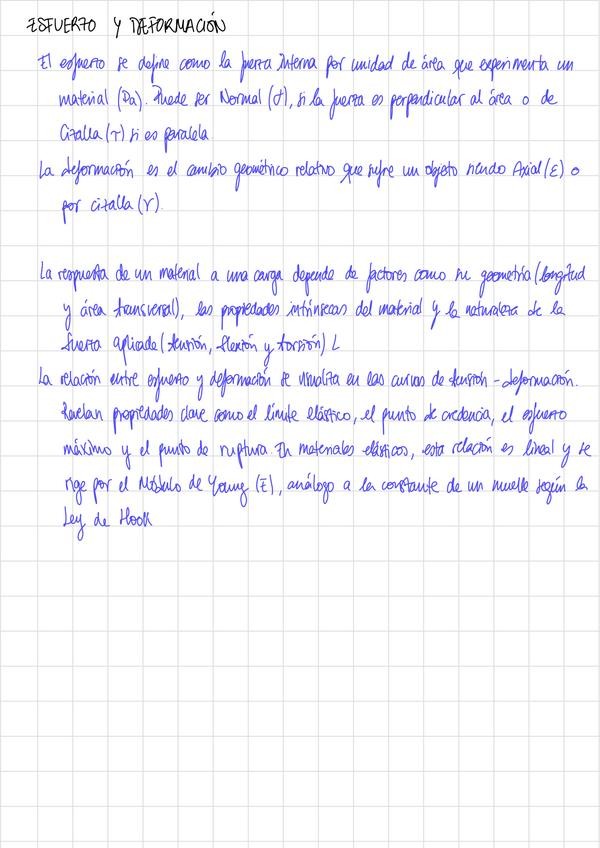 ESFUERZO Y DEFORMACIÓN
El esfuerzo se define como la fuerza interna por unidad de área que experimenta un
material (Pa). Puede ser Normal (σ), si la fuerza es perpendicular al área o de
Cizalla (τ) si es paralela.
La deformación es el cambio geométrico relativo que sufre un objeto siendo Axial (ε) o
por cizalla (γ).
La respuesta de un material a una carga depende de factores como su geometría (longitud
y área transversal), las propiedades intrínsecas del material y la naturaleza de la
fuerza aplicada (tensión, flexión y torsión) L
La relación entre esfuerzo y deformación se visualiza en las curvas de tensión - deformación.
Revelan propiedades clave como el límite elástico, el punto de cedencia, el esfuerzo
máximo y el punto de ruptura En materiales elásticos, esta relación es lineal y se
rige por el Módulo de Young (E), análogo a la constante de un muelle según la
Ley de Hook